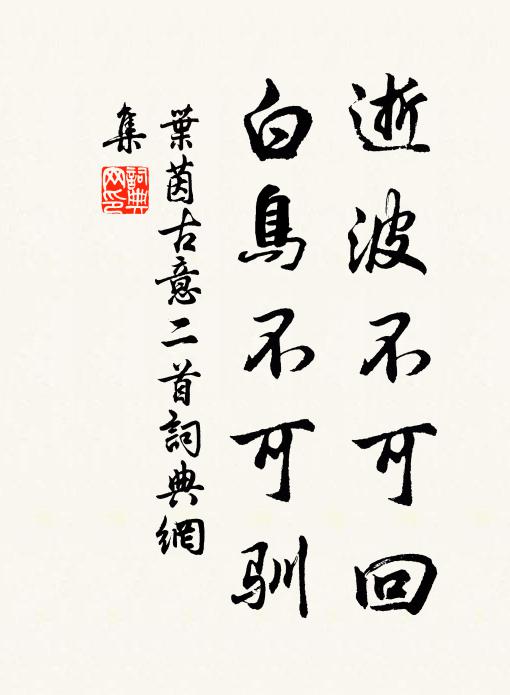 逝波不可回
白鳥不可馴
葉茵古意二首詞典網
集
詞典
网印